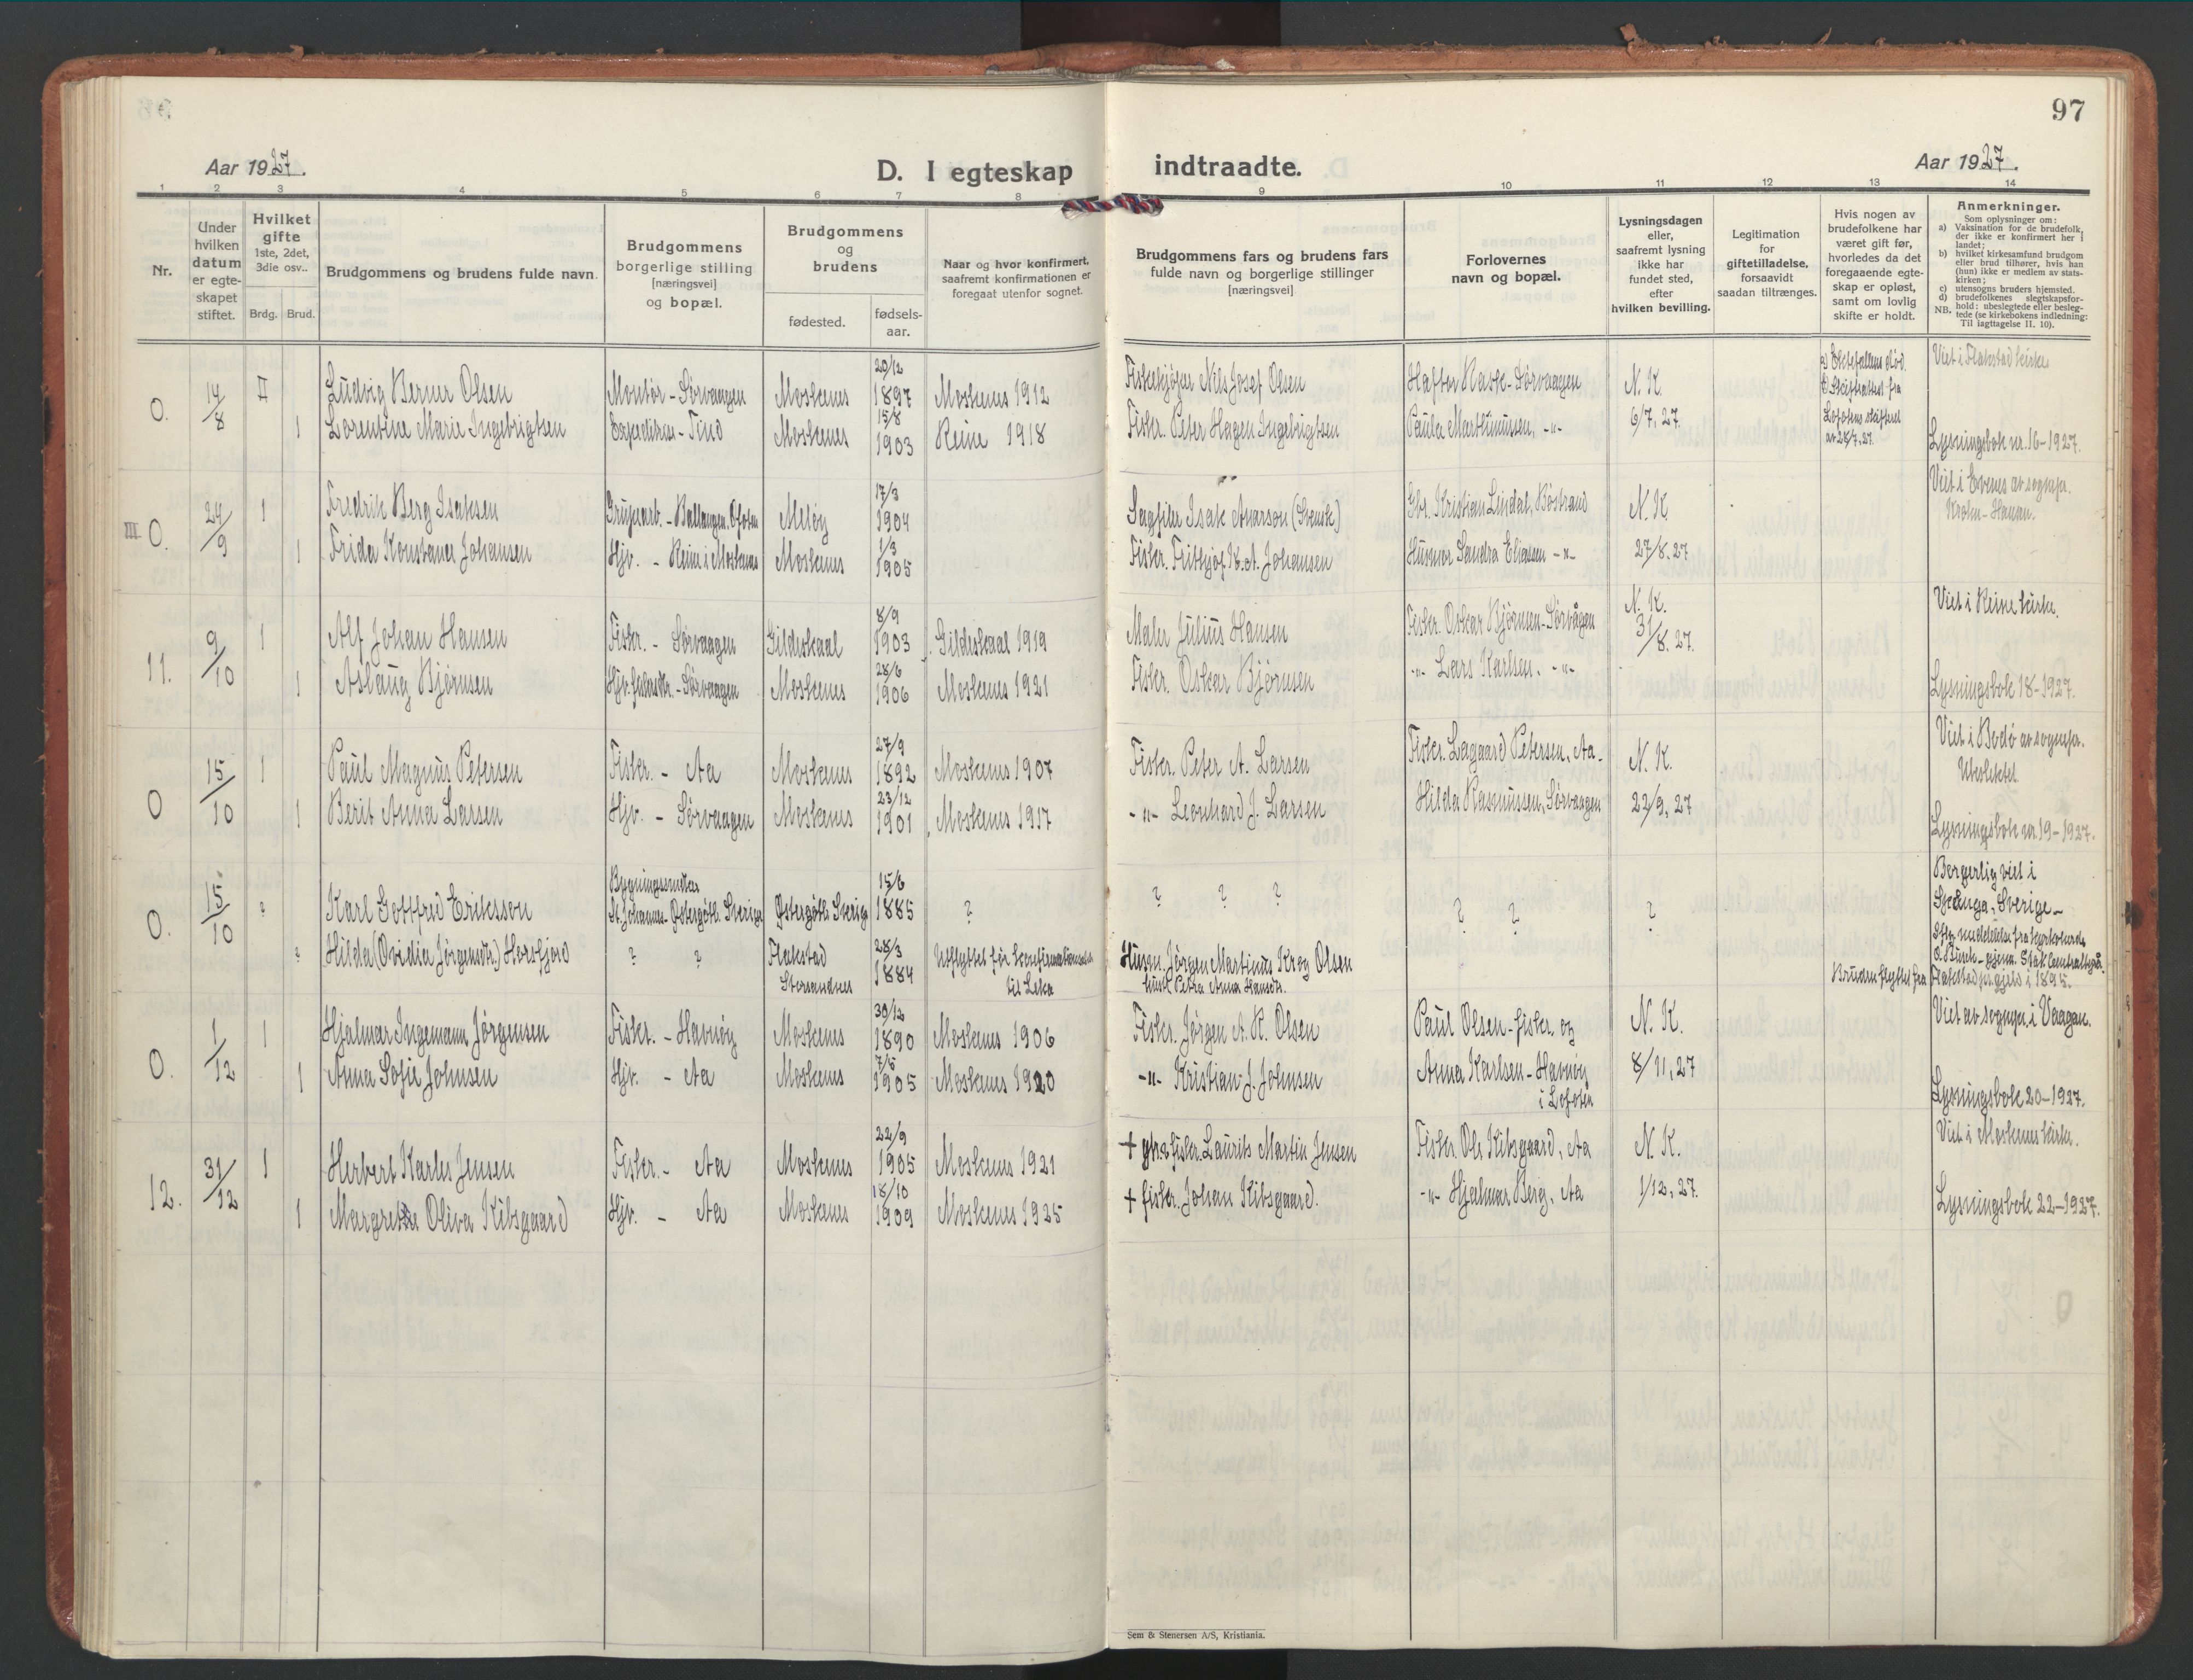 97
Aar 1927.
D. I egteskap indtraadte.
Aar 1927.
1 2 3 4 5 6 7 8 9 10 11 12 13 14
Nr.
Under hvilken datum er egteskapet stiftet.
Hvilket gifte 1ste, 2det, 3die osv..
Brdg. Brud.
Brudgommens og brudens fulde navn.
Brudgommens borgerlige stilling [næringsvei] og bopæl.
Brudgommens og brudens
fødested.
fødselsaar.
Naar og hvor konfirmert, saafremt konfirmationen er foregaat utenfor sognet.
Brudgommens fars og brudens fars fulde navn og borgerlige stillinger [næringsvei]
Forlovernes navn og bopæl.
Lysningsdagen eller, saafremt lysning ikke har fundet sted, efter hvilken bevilling.
Legitimation for giftetilladelse, forsaavidt saadan tiltrænges.
Hvis nogen av brudefolkene har været gift før, hvorledes da det foregaaende egteskap er opløst, samt om lovlig skifte er holdt.
Anmerkninger.
Som oplysninger om:
a) Vaksination for de brudefolk, der ikke er konfirmert her i landet;
b) hvilket kirkesamfund brudgom eller brud tilhører, hvis han (hun) ikke er medlem av statskirken;
c) utensogns bruders hjemsted.
d) brudefolkenes slegtskapsforhold: ubeslegtede eller beslegtede (se kirkebokens indledning: Til iagttagelse II. 10).
NB.
O. 14/8 II Ludvig Berner Olsen Montør - Sørvaagen Moskenes 20/12 1897 Moskenes 1912 Fiskekjøper Nils Josef Olsen Hafton Rask - Sørvaagen N. K. Viet i Flakstad kirke
1 Lorentine Marie Ingebrigtsen - Tind Moskenes 15/8 1903 Reine 1918 Fisker. Peter Hagen Ingebrigtsen Paula Marthinussen, -"- 6/7, 27. Lofotens av 28/7, 27. Lysningsbok nr. 16-1927.
III O. 24/9 1 Fredrik Berg Isaksen Grubearb. - Ballangen, Ofoten Meløy 17/3 1904 Sagfiler Isak Aarson (Svensk) Gbr. Kristian Lindal, Bøstrand N. K. Viet i Evenes av sognepr. Krohn-Hansen.
1 Frida Konstanse Johansen Hjv. - Reine i Moskenes Moskenes 1/3 1905 Fisker. Frithjof K. A. Johansen Husmor Sandra Eliasen -"- 27/8. 27
11. 9/10 1 Alf Johan Hansen Fisker. - Sørvaagen Gildeskaal 8/9 1903 Gildeskaal 1919 Maler Julius Hansen Fisker. Oskar Bjørnsen - Sørvågen N. K. 31/8. 27. Viet i Reine kirke.
1 Aslaug Bjørnsen Hjv. - Sørvaagen Moskenes 28/6 1906 Moskenes 1921 Fisker. Oskar Bjørnsen -"- Lars Karlsen. -"- Lysningsbok 18-1927.
O 15/10 1 Paul Magnus Petersen Fisker. - Aa Moskenes 27/9 1892 Moskenes 1907 Fisker. Peter A. Larsen Fisker. Lagaard Petersen, Aa - N. K. Viet i Bodø av sognepr.
1 Berit Anna Larsen Hjv. - Sørvaagen Moskenes 23/12 1901 Moskenes 1917 -"- Leonhard J. Larsen Hilda Rasmussen, Sørvaagen 22/9, 27 Lysningsbok nr. 19-1927.
O. 15/10 ? Karl Gottfred Eriksson St. Johannes - Østergötl. Sverige Østergötl. Sverige 15/6 1885 ? ? ? ? ? ? ? Borgerlig viet i Sverige -
? Hilda (Ovidia Jørgensdtr.) Horsfjord ? ? Flakstad Storsandnes 28/3 1884 Utflyttet før konfirmationsald. til Leka Husm. Jørgen Martinus Krog Olsen
hust. Petra Anna Hansdtr. Bruden flyttet fra Flakstad pr.gjeld i 1895.
O. 1/12 1 Hjalmar Ingemann Jørgensen Fisker. - Havnøy Moskenes 30/12 1890 Moskenes 1906 Fisker. Jørgen A. R. Olsen Paul Olsen - fisker og N. K. Viet av sognepr. i Vaagan.
1 Anna Sofie Johnsen Hjv. - Aa Moskenes 7/5 1905 Moskenes 1920 -"- Kristian J. Johnsen Anna Karlsen - Havnøy i Lofoten 8/11, 27 Lysningsbok 20-1927.
12. 31/12 1 Herbert Karles Jensen Fisker. - Aa Moskenes 22/9 1905 Moskenes 1921 + fisker Laurits Martin Jensen Fisker. Ole Kibsgaard, Aa N. K. Viet i Moskenes kirke.
1 Margrete Oliva Kibsgaard Hjv. - Aa Moskenes 18/10 1909 Moskenes 1925 + fisker. Johan Kibsgaard. -"- Hjalmar Berg, Aa 1/12, 27. Lysningsbok 22-1927.
Sem & Stenersen A/S, Kristiania.